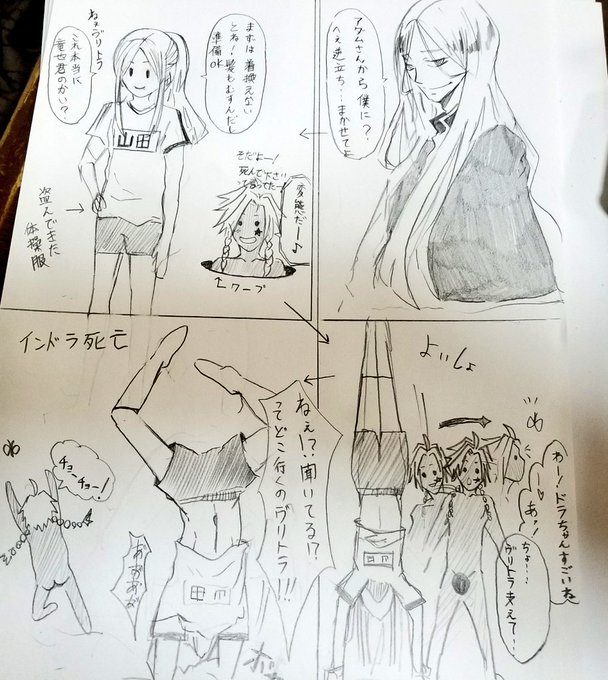 アダムさんから僕に？
へぇ逆立ち・・まかせてよ
まずは着換えない
とね！髪もむすんだし
準備OK
ねぇヴリトラ
これ本当に
竜也君のかい？
山田
盗んできた
体操服
そだよー！
死んで下さい
って言ってたー！
変態だー♪
ワープ
よいしょ
わー！ドラちゃんすごいね
あっ！
ちょ・・
ヴリトラ支えて・・
山田
インドラ死亡
ねぇ!?聞いてる!?
ってどこ行くのヴリトラ!!!
チョーチョー！
山田